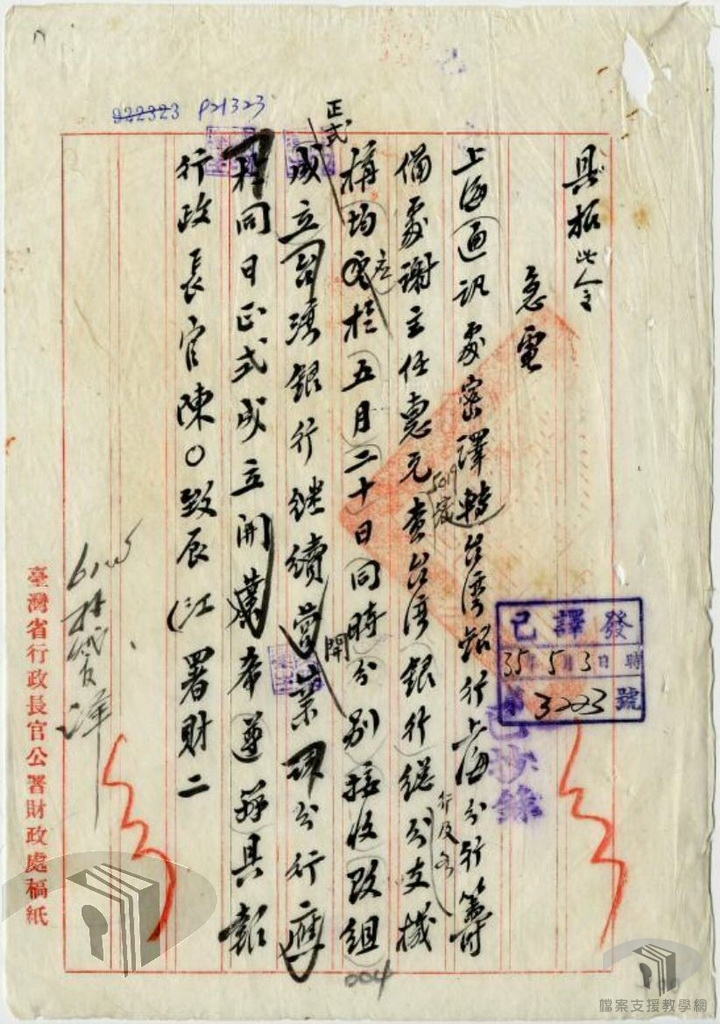 922323 P21323
具拓此令
急電
上海通訊處密譯轉台湾銀行上海分行籌
備處謝主任惠元查台湾銀行總分支機
行及各
構均定於五月二十日同時分別接收改組
正式
成立台湾銀行继續営業 分行應
開
於同日正式成立開業希遵辦具報
行政長官陳○致辰江署財二
已譯發
35年5月3日 時
第3223號
已抄錄
臺灣省行政長官公署財政處稿紙
004
檔案支援教學網